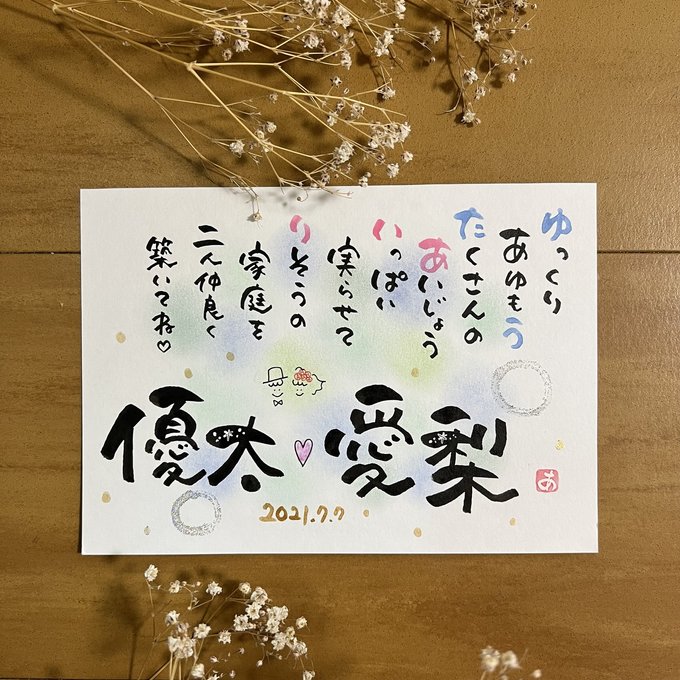 ゆっくり
あゆもう
たくさんの
あいじょう
いっぱい
実らせて
りそうの
家庭を
二人仲良く
築いてね♡
優太♡愛梨
2021.7.7
あ